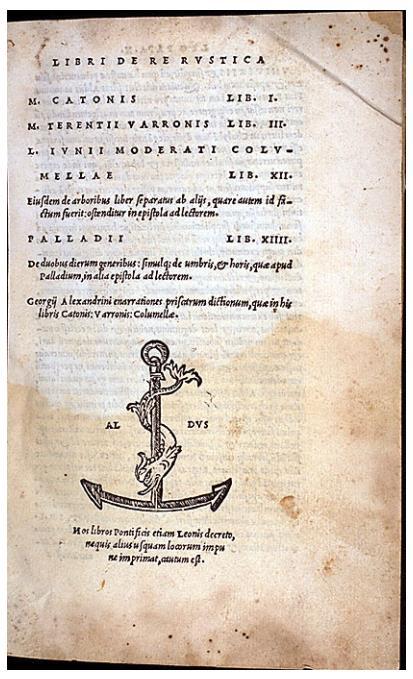 LIBRI DE RE RVSTICA
M. CATONIS LIB. I.
M. TERENTII VARRONIS LIB. III.
L. IVNII MODERATI COLV-
MELLAE LIB. XII.
Eiusdem de arboribus liber separatus ab alijs, quare autem id fa-
ctum fuerit: ostenditur in epistola ad lectorem.
PALLADII LIB. XIIII.
De duobus dierum generibus: simulq; de umbris, & horis, quæ apud
Palladium, in alia epistola ad lectorem.
Georgij Alexandrini enarrationes priscarum dictionum, quæ in his
libris Catonis: Varronis: Columellæ.
AL DVS
Hos libros Pontificis etiam Leonis decreto,
nequis alius usquam locorum impu
ne imprimat, cautum est.